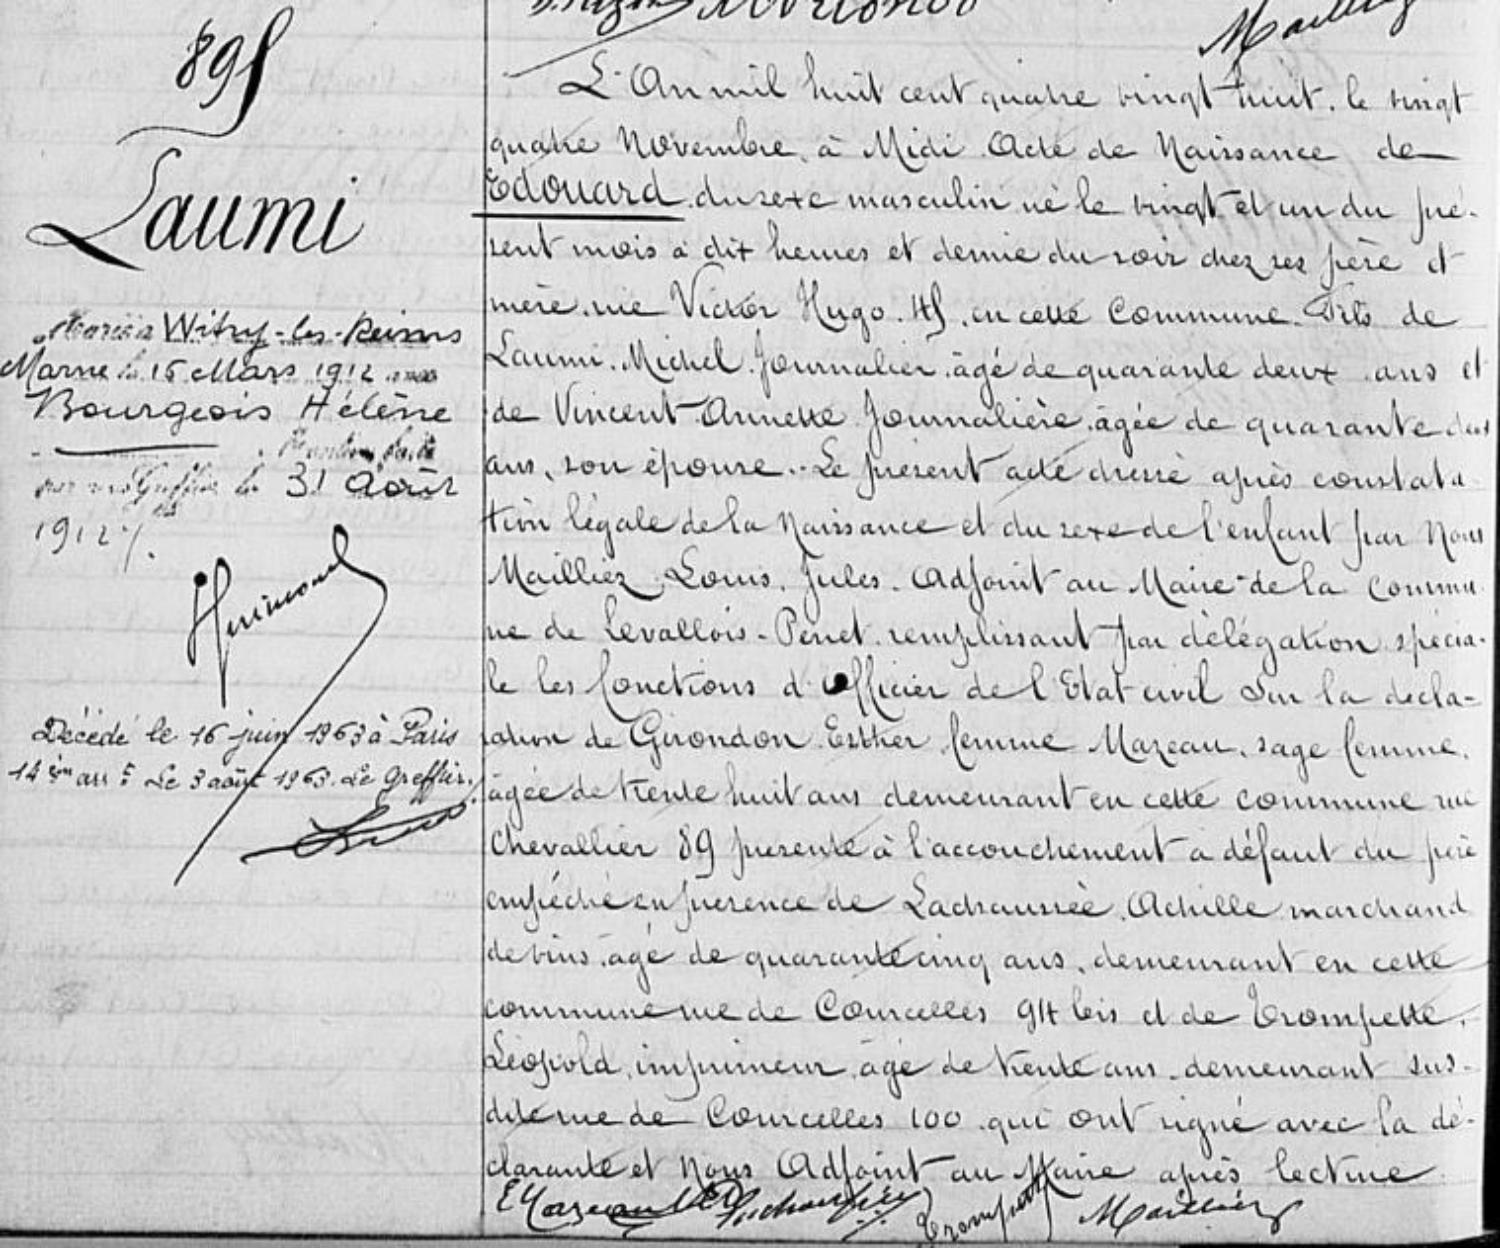 895
Laumi
Marié à Witry-les-Reims
Marne le 16 Mars 1912 avec
Bourgeois Hélène
Mention faite
par nous Greffier le 31 Août
1912
Décédé le 16 juin 1963 à Paris
14ème arrt Le 3 août 1963. Le Greffier.
L'An mil huit cent quatre vingt huit. le vingt
quatre Novembre, à Midi Acte de Naissance de
Edouard du sexe masculin né le vingt et un du pré-
sent mois à dix heures et demie du soir chez ses père et
mère, rue Victor Hugo. 45, en cette Commune. Fils de
Laumi. Michel. Journalier. âgé de quarante deux ans et
de Vincent Annette Journalière âgée de quarante deux
ans, son épouse. Le présent acte dressé après constata-
tion légale de la Naissance et du sexe de l'enfant par Nous
Mailliez Louis, Jules. Adjoint au Maire de la Commu-
ne de Levallois-Perret remplissant par délégation spécia-
le les fonctions d'officier de l'Etat civil Sur la décla-
ration de Girondon Esther femme Mazeau, sage femme.
âgée de trente huit ans demeurant en cette commune rue
Chevallier 89 présente à l'accouchement à défaut du père
empêché en présence de Lachaussée, Achille marchand
de vins, âgé de quarante cinq ans, demeurant en cette
commune rue de Courcelles 94 bis et de Trompette,
Léopold, imprimeur, âgé de trente ans demeurant sus-
dite rue de Courcelles 100 qui ont signé avec la dé-
clarante et Nous Adjoint au Maire après lecture
E Mazeau Lachaussée Trompette Mailliez